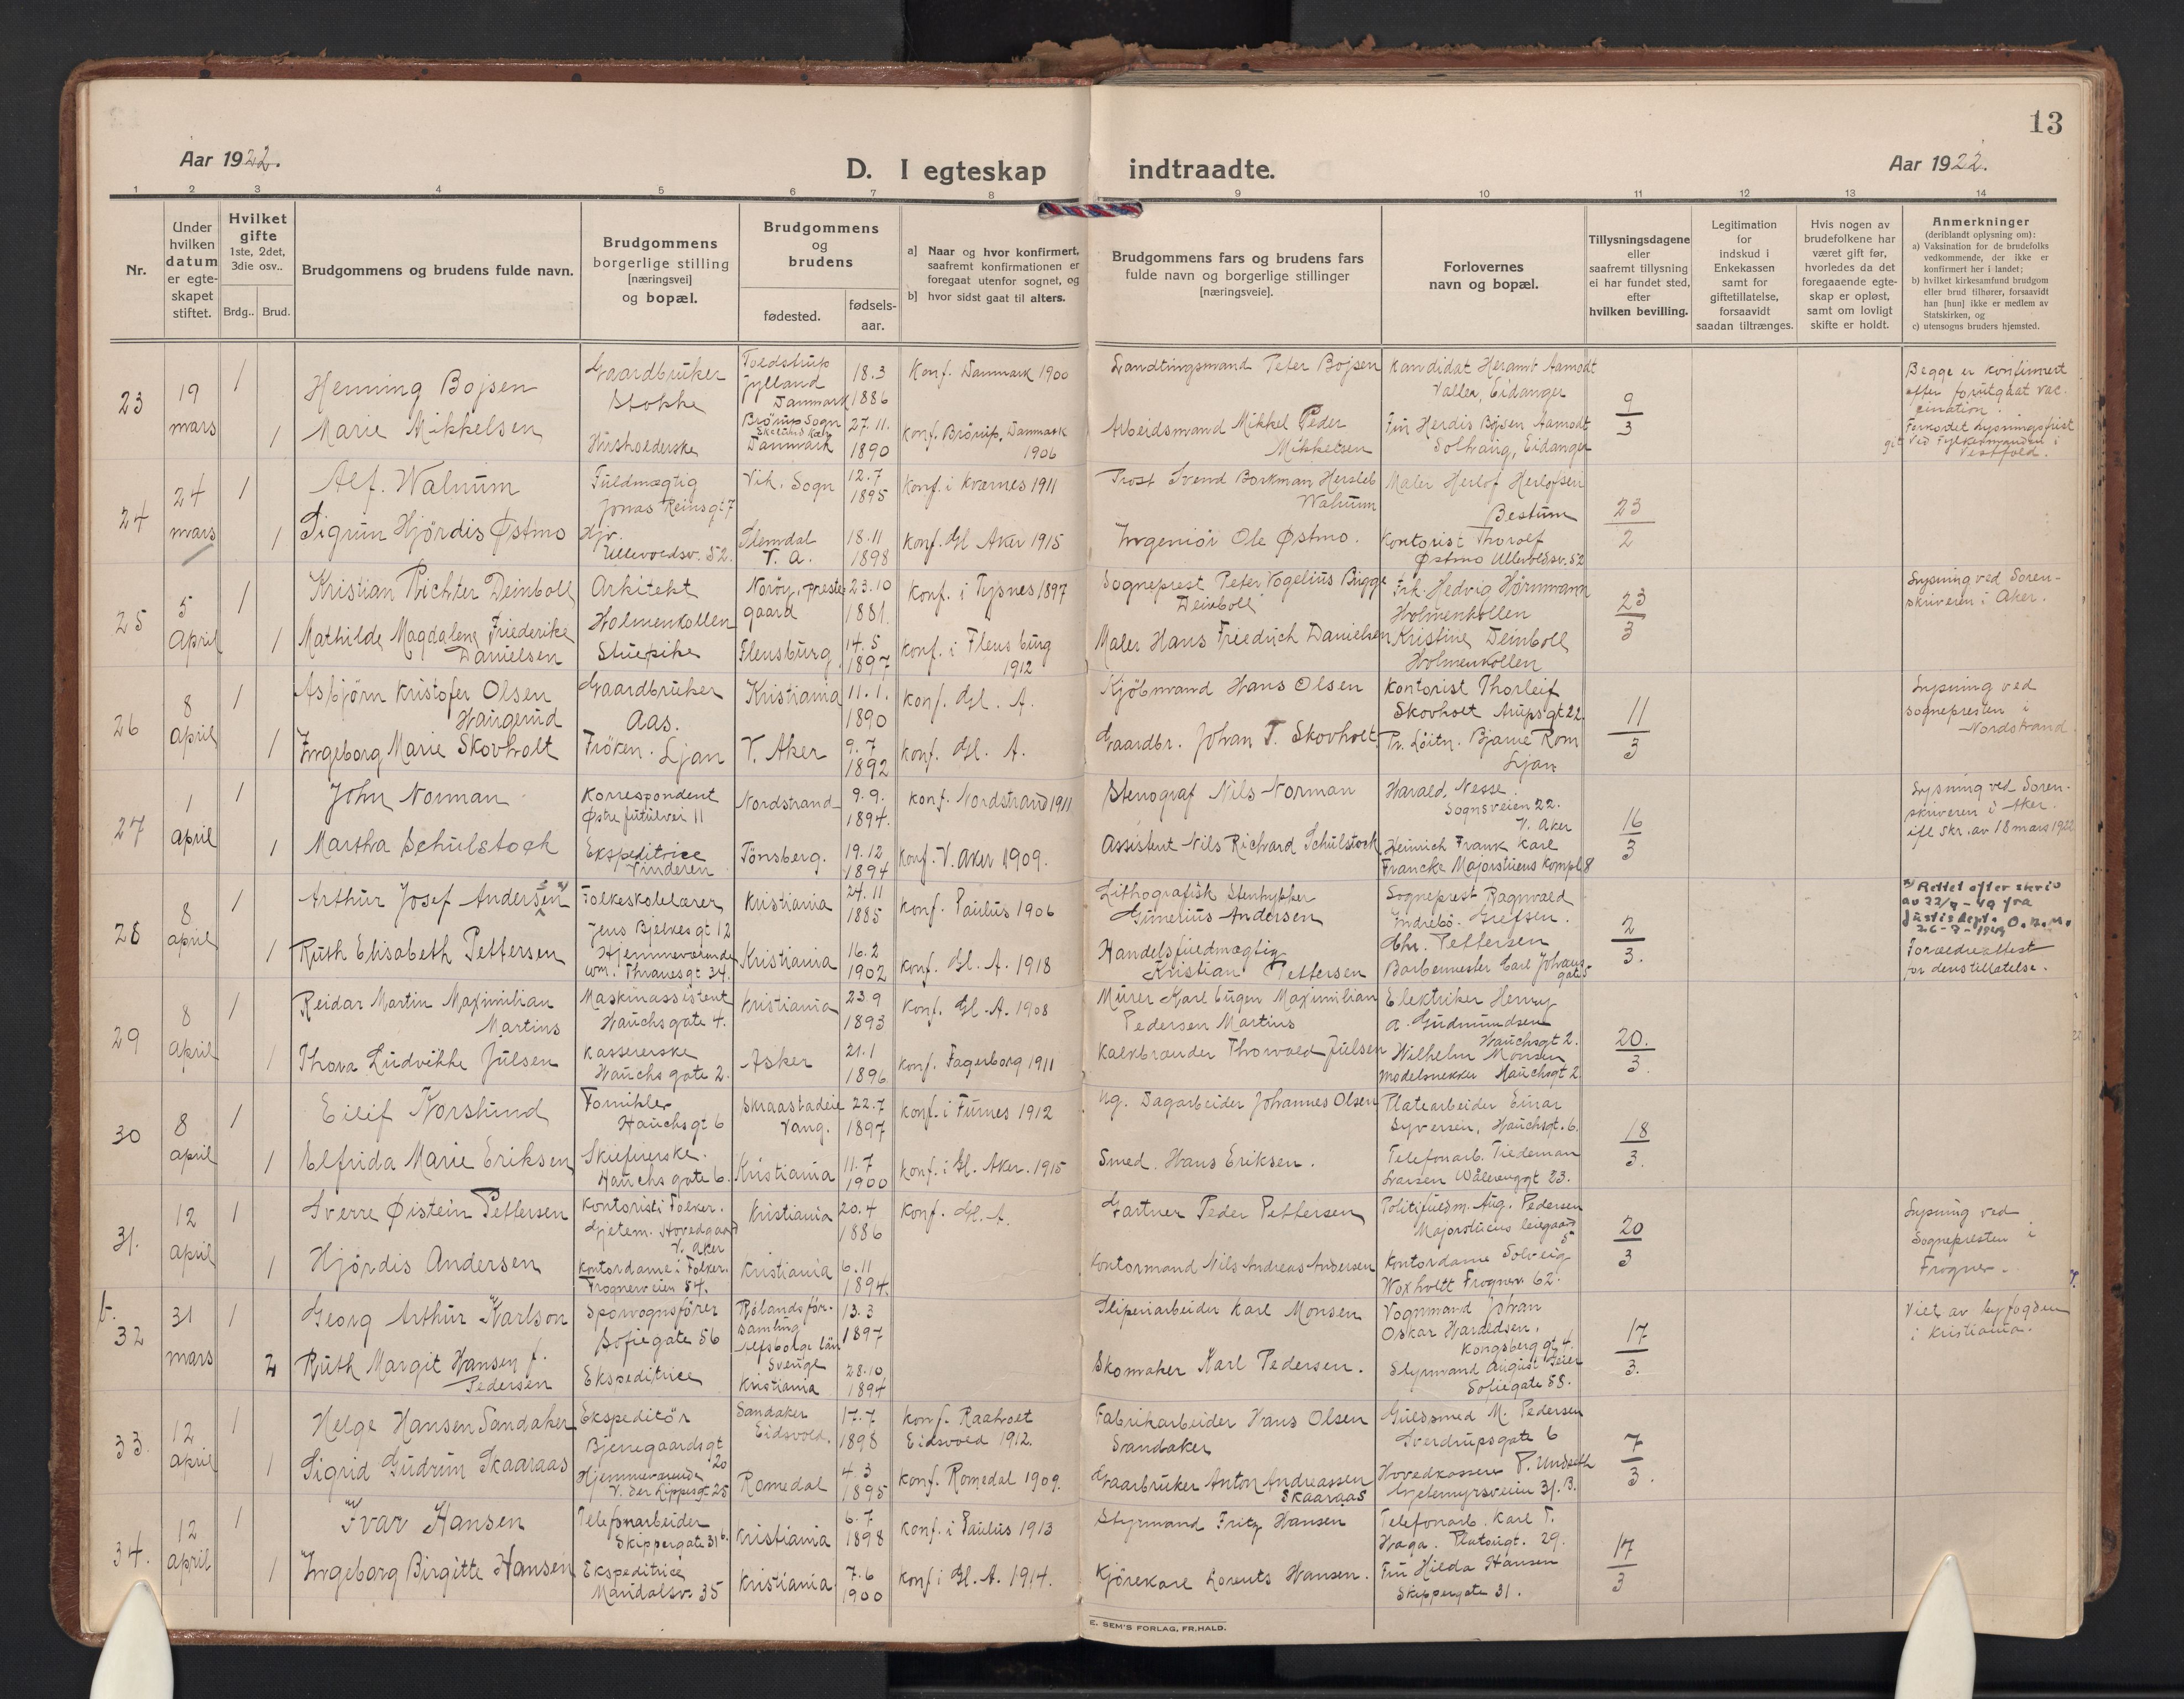 13
Aar 1922.
D. I egteskap indtraadte.
Aar 1922.
1 2 3 4 5 6 7 8 9 10 11 12 13 14
Nr.
Under hvilken datum er egte-skapet stiftet.
Hvilket gifte
1ste, 2det, 3die osv..
Brdg.. Brud.
Brudgommens og brudens fulde navn.
Brudgommens borgerlige stilling [næringsvei] og bopæl.
Brudgommens og brudens
fødested.
fødsels-aar.
a] Naar og hvor konfirmert, saafremt konfirmationen er foregaat utenfor sognet, og
b] hvor sidst gaat til alters.
Brudgommens fars og brudens fars fulde navn og borgerlige stillinger [næringsveie].
Forlovernes navn og bopæl.
Tillysningsdagene eller saafremt tillysning ei har fundet sted, efter hvilken bevilling.
Legitimation for indskud i Enkekassen samt for giftetillatelse, forsaavidt saadan tiltrænges.
Hvis nogen av brudefolkene har været gift før, hvorledes da det foregaaende egte-skap er opløst, samt om lovligt skifte er holdt.
Anmerkninger
(deriblandt oplysning om):
a) Vaksination for de brudefolks vedkommende, der ikke er konfirmert her i landet;
b) hvilket kirkesamfund brudgom eller brud tilhører, forsaavidt han [hun] ikke er medlem av Statskirken, og
c) utensogns bruders hjemsted.
23 19 mars 1 Henning Bojsen Gaardbruker Stokke Toldstrup Jylland Danmark 18.3 1886 Konf. Danmark 1900 Landtingsmand Peter Bojsen Kandidat Heramb Aamodt Vallen, Eidanger 9/3 Begge er konfirmert efter forutgaat vaccination.
1 Marie Mikkelsen Husholderske Brörup Sogn Danmark 27.11. 1890 Konf. Brörup, Danmark 1906 Arbeidsmand Mikkel Peder Mikkelsen Fru Herdis Bojsen Aamodt Solhaug, Eidanger Forkortet lysningsfrist git ved Fylkesmanden i Vestfold.
24 24 mars 1 Alf. Walnum Fuldmægtig Jonas Reinsgt 7 Vik. Sogn 12.7 1895 Konf. i Kvernes 1911 Prost Svend Borkman Hersleb Walnum Maler Herlof Herlofsen Bestum 23/2
1 Sigrun Hjördis Østmo Hjv. Ullevoldsv. 52. Slemdal V. A. 18.11 1898 Konf. Gl Aker 1915 Ingeniör Ole Østmo. Kontorist Thorolf Østmo Ullevoldsv. 52
25 5 April 1 Kristian Richter Deinboll Arkitekt Holmenkollen Noröy, preste gaard 23.10 1881. Konf. i Tysnes 1897 Sogneprest Peter Vogelius Brügge Deinboll Frk. Hedvig Hörnmann Holmenkollen 23/3 Lysning ved Soren-skriveren i Aker.
1 Mathilde Magdalene Friederike Danielsen Stuepike Flensburg 14.5 1897 Konf. i Flensburg 1912 Maler Hans Friedrich Danielsen Kristine Deinboll Holmenkollen
26 8 april 1 Asbjörn Kristofer Olsen Haugerud Gaardbruker Aas. Kristiania 11.1. 1890 Konf. Gl. A. Kjöbmand Hans Olsen Kontorist Thorleif Skovholt Arupsgt 22. 11/3 Lysning ved sognepresten i Nordstrand.
1 Ingeborg Marie Skovholt Fröken. Ljan V. Aker 9.7 1892 Konf. Gl. A. Gaardbr. Johan T. Skovholt. Pr. Löitn. Bjarne Rom Ljan
27 1 april 1 John Norman Korrespondent Østre 11 Nordstrand 9.9. 1894. Konf. Nordstrand 1911 Stenograf Nils Norman Harald Nesse. Sognsveien 22. V. Aker 16/3 Lysning ved Soren-skriveren i Aker. ifl skr. av 18 mars 1922
1 Martha Schulstock Ekspeditrice Vinderen Tönsberg. 19.12 1894 Konf. V. Aker 1909. Assistent Nils Richard Schulstock Heinrich Frank Karl Francke Majorstuens kompl 8
28 8 april 1 Arthur Josef Andersen Folkeskolelærer Jens Bjelkesgt 12 Kristiania 24.11 1885 Konf. Paulus 1906 Lithografisk Stentrykker Gunerius Andersen Sogneprest Ragnvald Indrebö. Grefsen. 2/3. Rettet efter skriv av 22/7-49 fra Justisdept. 26-7-1949 O.n.M.
1 Ruth Elisabeth Pettersen Hjemmeværende Wm. Thranesgt 34. Kristiania 16.2 1902 Konf. Gl. A. 1918 Handelsfuldmægtig Kristian Pettersen Chr. Pettersen Barbermester Carl Johansgate 5 Forældreattest for dens tillatelse.
29 8 april 1 Reidar Martin Maximilian Martins Maskinassistent Hauchsgate 4. Kristiania 23 9 1893 Konf. Gl. A. 1908 Murer Karl Eugen Maximilian Pedersen Martins Elektriker Henry A. Gudmundsen Hauchsgt 2. 20./3.
1 Thora Ludvikke Julsen Kassererske Hauchsgate 2. Asker 21.1 1896 Konf. Fagerborg 1911 Kalkbrænder Thorvald Julsen Wilhelm Monsen Modelsnekker Hauchsgt 2
30 8 april 1 Eilif Korslund Fornikler Hauchsgt 6 Skraastadeie Vang. 22.7 1897 Konf. i Furnes 1912 Ug. Dagarbeider Johannes Olsen Platearbeider Einar Syversen, Hauchsgt. 6. 18/3.
1 Elfrida Marie Eriksen Hauchsgate 6. Kristiania 11.7 1900 Konf. i Gl. Aker. 1915 Smed. Hans Eriksen. Telefonarb. Tiedeman Larsen Wålerenggt 23.
31. 12 april 1 Sverre Øistein Pettersen Kontorist i Folker. Gjetem. Hovedgaard V. Aker Kristiania 20.4 1886 Konf. Gl. A. Gartner Peder Pettersen Politifuldm. Aug. Pedersen Majorstuens leiegaard 5 20/3 Lysning ved Sognepresten i Frogner.
1 Hjördis Andersen Kontordame i Folker. Frognerveien 54. Kristiania 6.11 1894. Kontormand Nils Andreas Andersen Kontordame Solveig Woxholtt Frognerv. 62.
b. 32 31 mars 1 Georg Arthur Karlson Sporvognsförer Sofiegate 56 Rölandsför-samling Elfsborgs län Sverige 13.3 1897 Sliperiarbeider Karl Monsen Vognmand Johan Oskar Haraldsen. Kongsberggt 4. 17/3. Viet av byfogden i Kristiania.
2 Ruth Margit Hansen f. Pedersen Ekspeditrice Kristiania 28.10 1894 Skomaker Karl Pedersen. Styrmand August Feier Sofiegate 58.
33. 12 april 1 Helge Hansen Sandaker Ekspeditör Bjerregaardsgt 20 Sandaker Eidsvold. 17.7 1898 Konf. Raaholt Eidsvold 1912. Fabrikarbeider Hans Olsen Sandaker Guldsmed M. Pedersen Sverdrupsgate 6 7/3.
1 Sigrid Gudrun Skaaraas Hjemmeværende V. der Lippesgt 25 Romedal 4.3 1895 Konf. Romedal 1909. Gaarbruker Anton Andreassen Skaaraas Hovedkasserer P. Undseth Gjetemyrsveien 31.B.
34. 12 april 1 Ivar Hansen Telefonarbeider Skippergate 31 b. Kristiania 6.7 1898 Konf. i Paulus 1913 Styrmand Fritz Hansen Telefonarb. Karl T. Haga. Platougt. 29. 17/3
1 Ingeborg Birgitte Hansen Ekspeditrice Maridalsv. 35 Kristiania 7.6 1900 Konf i Gl. A. 1914. Kjörekarl Lorents Hansen. Fru Hilda Hansen Skippergate 31.
E. SEM'S FORLAG, FR.HALD.